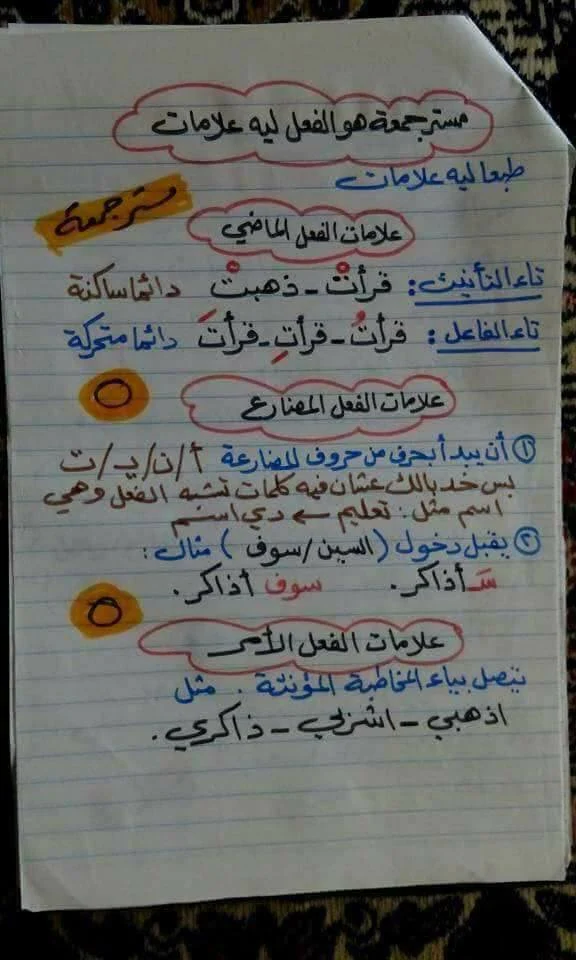 مستر جمعة هو الفعل ليه علامات
طبعا ليه علامات
مستر جمعة
علامات الفعل الماضي
تاء التأنيث: قرأتْ - ذهبتْ دائما ساكنة
تاء الفاعل: قرأتُ - قرأتِ - قرأتَ دائما متحركة
علامات الفعل المضارع
① أن يبدأ بحرف من حروف المضارعة أ/ن/ي/ت
بس خد بالك عشان فيه كلمات تشبه الفعل وهي
اسم مثل: تعليم ← دي اسم
② يقبل دخول (السين/سوف) مثال:
سَأذاكر. سوف أذاكر.
علامات الفعل الأمر
يتصل بياء المخاطبة المؤنثة. مثل
اذهبي - اشربي - ذاكري.